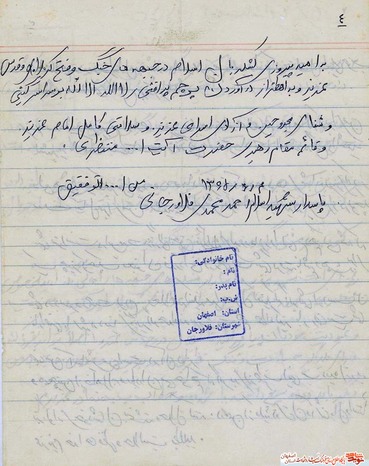 ٤
به امید پیروزی لشکریان اسلام در جبهه های جنگ و فتح کربلا و قدس
عزیز و به اهتزاز در آوردن پرچم پر افتخار لا اله الا الله بر سراسر گیتی
و شفای مجروحین و آزادی اسرای عزیز و سلامتی کامل امام عزیز
و قائم مقام رهبری حضرت آیت ا... منتظری.
من ا... التوفیق
پاسدار شهید اسلام احمد محمدی فلاورجانی
نام خانوادگی:
نام:
نام پدر:
استان: اصفهان
شهرستان: فلاورجان